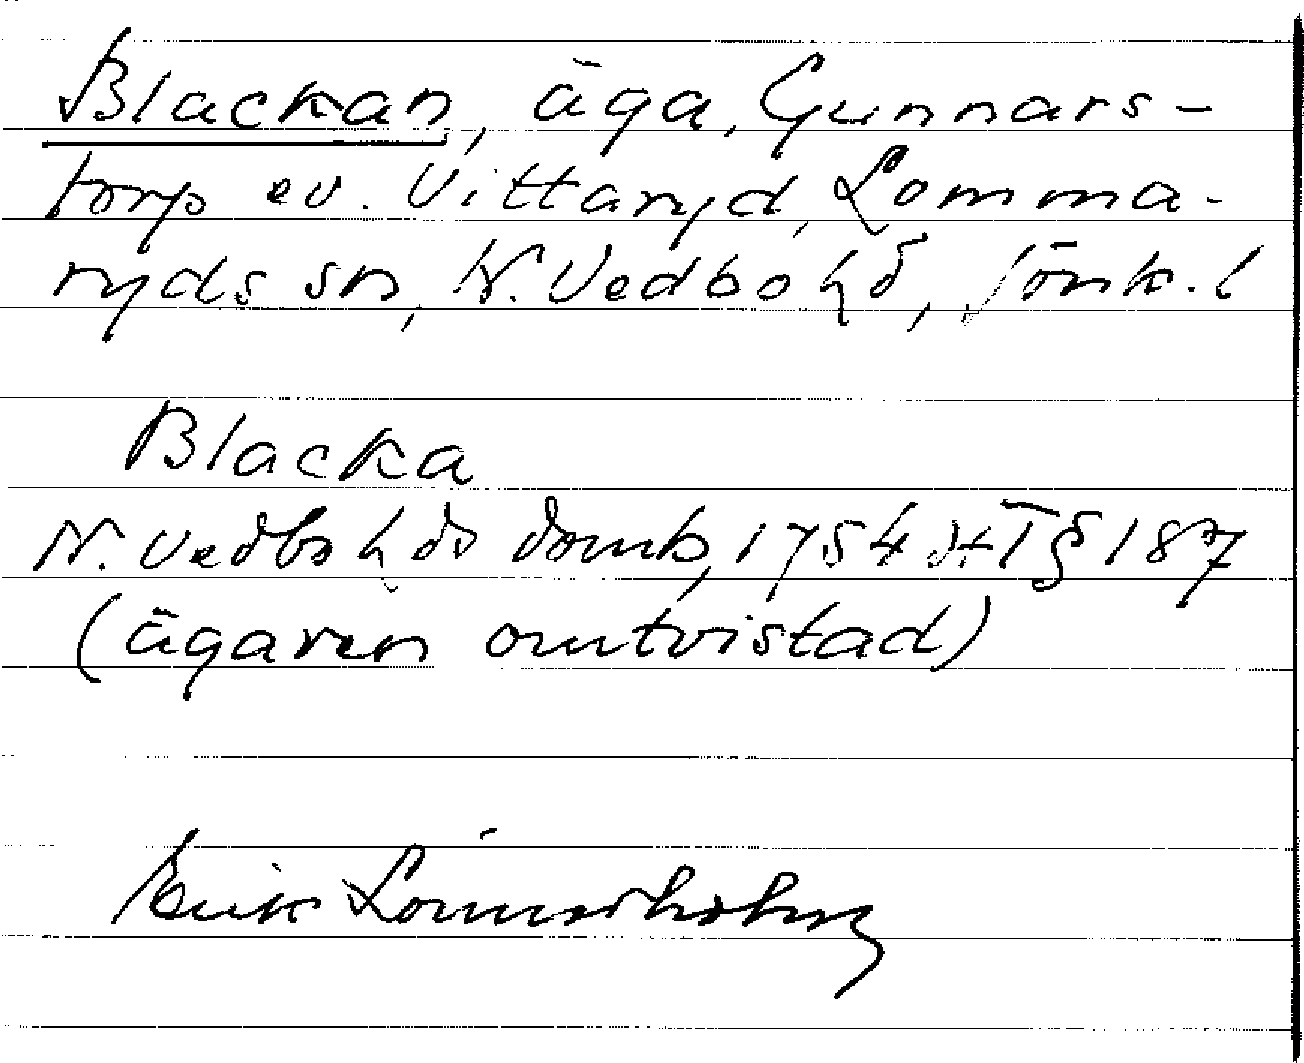 Blackan, äga, Gunnars-
torp ev. Vittaryd, Lomma-
ryds sn, N. Vedbo hd, Jönk. l
Blacka
N. Vedbo hds domb, 1754 ht § 187
(ägaren omtvistad)
Erik Lönnerholm